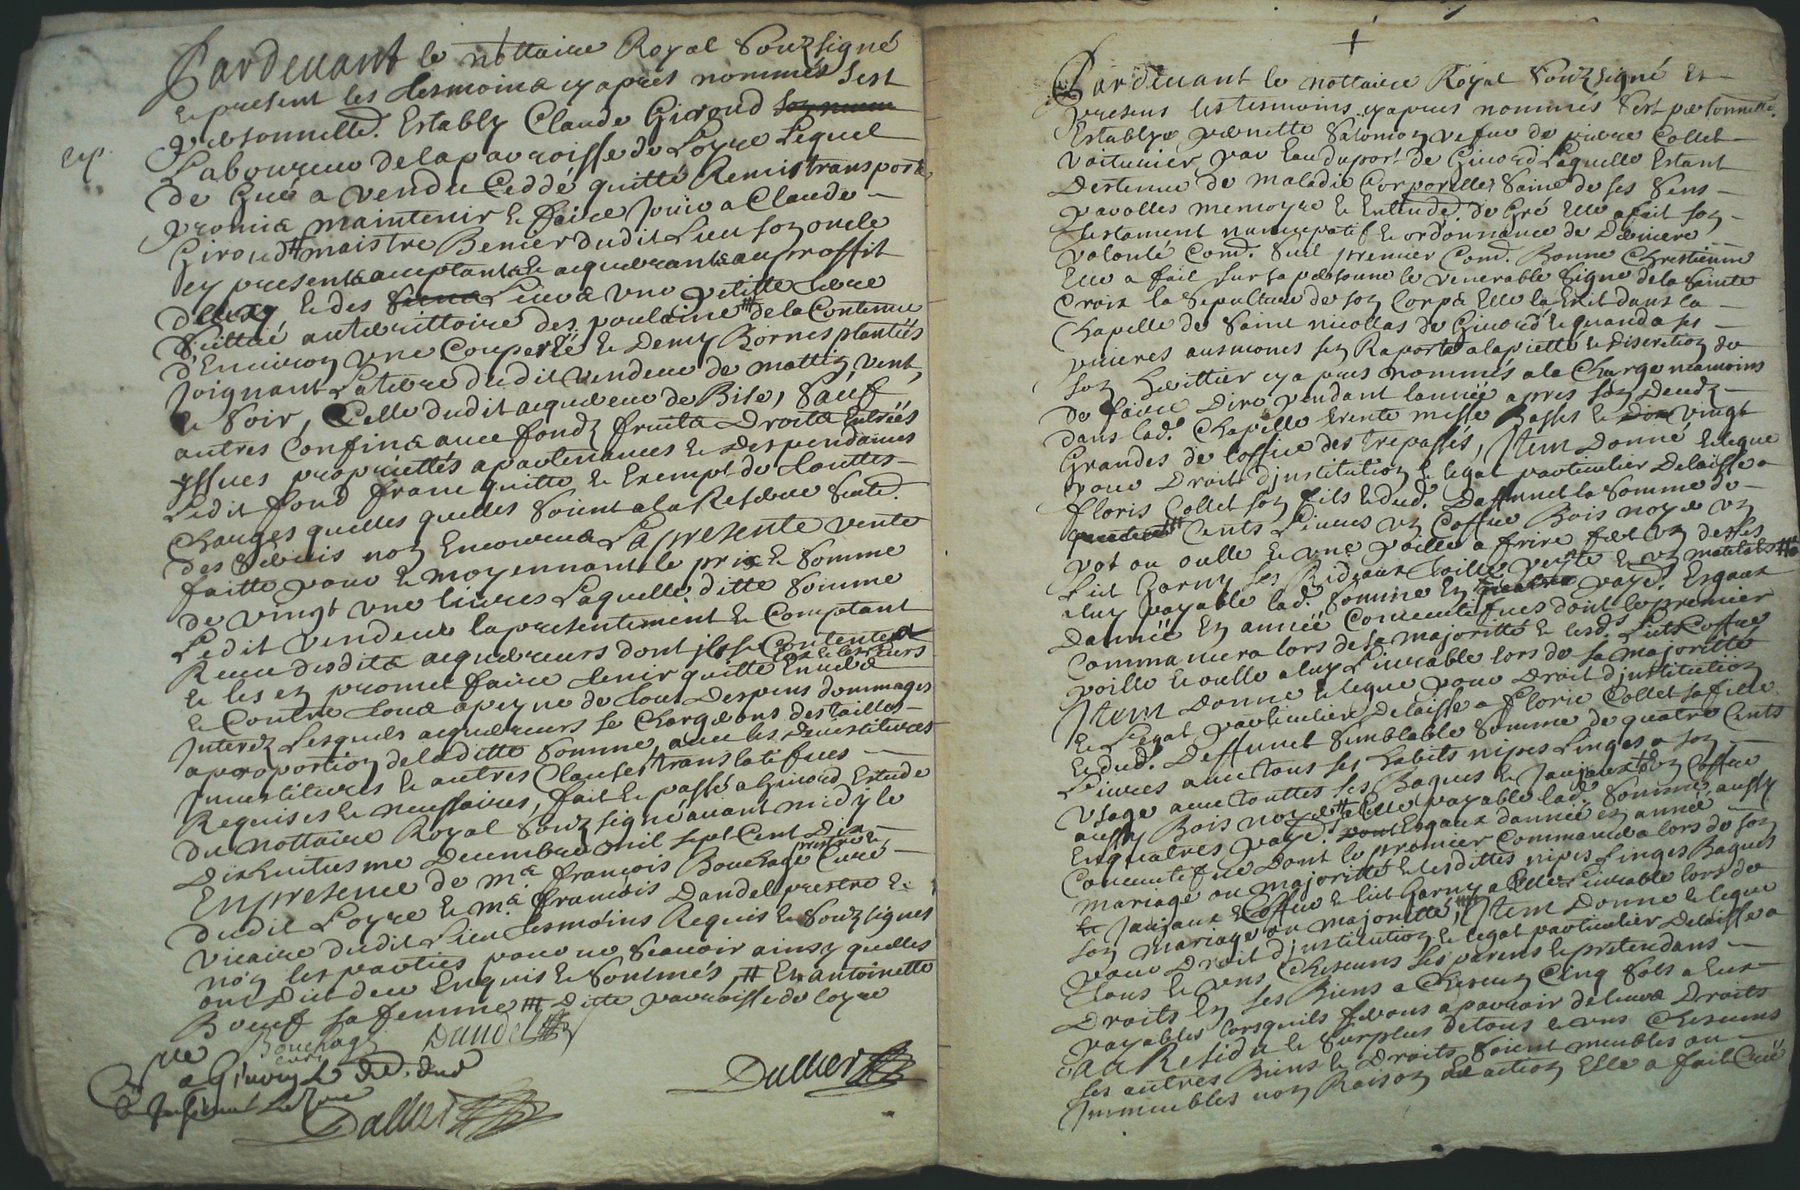 Pardevant le nottaire Royal Souzsigné
et present les tesmoins cy apres nommés sest
personnelld. Estably Claude Giroud
exp.
Laboureur de la parroisse de Loyre Lequel
de Gré a vendu Ceddé quitté Remis transporté
promis maintenir et faire Jouir a Claude
Giroud # maistre Benier dudit Lieu son oncle
icy present acceptant et acquerant au proffit
deluy et des Siens une petitte terre
Scittué au territoire des poulaine de la Contenue
d'Environ une Couperée et Demy Bornes plantés
Joignant La terre dudit vendeur de mattin, vent,
et Soir, Celle dudit acquereur de Bise, Sauf
autres Confins avec fondz fruits Droits Entrées
yssues proprietés apartenances et Dependances
Ledit fond franc quitte et Exempt de touttes
Charges quelles quelles Soient a la Reserve
des Servis non Encourus La presente vente
faitte pour et moyennant le prix et Somme
de vingt une livres Laquelle ditte Somme
Ledit vendeur la presentement et Comptant
Receu desdits acquereurs dont il se Contente
et les en promet faire tenir quitte Envers
et Contre tous a peyne de tous Despens dommages
Interez Lesquels acquereurs se Chargeront des tailles
a proportion de laditte Somme, avec les Devestitures
Investitures et autres Clauses translatifves
Requises et necessaires, fait et passé a Givord Estude
du nottaire Royal Souzsigné avant midy le
Dixhuitiesme Decembre mil sept Cent Dix
En presence de me. françois Bouchage prestre et Curé
dudit Loyre et me. francois Dandel prestre et
vicaire dudit Lieu tesmoins Requis et Souzsignés
non les parties pour ne Scavoir ainsy quelles
ont Dit de ce Enquis et Sommés, # Et antoinette
Boeuf sa femme ## Ditte parroisse de loyre
Bouchage
curé
Dandel
Dallier
Dallier
Pardevant le nottaire Royal Souzsigné Et
presens les tesmoins cy apres nommés Sest personnelld.
Establye pernette Salomon vefve de pierre Collet
voiturier par Eau du port de Givord Laquelle Estant
Detenue de maladie Corporelle, Saine de ses Sens
parolles memoyre et Entendd. de Gré Elle a fait son
testament nuncupatif et ordonnance de Derniere
volonté Comd. Suit premier Comd. Bonne Chrestienne
Elle a fait Sur sa personne le venerable Signe de la Sainte
Croix la Sepulture de son Corps Elle la Eslit dans la
Chapelle de Saint nicollas de Givord et quand a ses
prieres ausmones sen Raporte a la pietté et Discretion de
son heritier cy apres nommés a la Charge neamoins
de faire Dire pendant lannée apres son Decedz
dans lad. Chapelle trente messe Basses et vingt
Grandes de loffice des trepassés, Item Donne et legue
pour Droit dinstitution et legat particulier Delaisse a
floris Collet son fils et dud. Deffunct la Somme de
Cents Livres un Coffre Bois noyer un
pot ou oulle et une poille a frire fer un
Lit Garny ses Rideaux toille verte et un mattelas
a luy payable lad. Somme En payed. Esgaux
Dannée En année Consecutifves dont le premier
Commancera lors de sa majoritté et lesd. Lit Coffre
poille et oulle a luy Livrable lors de sa majoritté
Item Donne et legue pour Droit dinstitution
et Legat particulier Delaisse a florie Collet sa fille
et dud. Deffunct Semblable Somme de quatre Cents
Livres avec tous ses habits nipes Linges a son
usage avec touttes ses Bagues et Joujaux un Coffre
aussy Bois noyer a Elle payable lad. Somme aussy
En quatres payed. Esgaux dannée en année
Consecutifve Dont le premier Commancera lors de son
mariage ou majoritté et lesdittes nipes Linges Bagues
et Joujaux Coffre et lit Garny a Elle Livrable lors de
son mariage ou majoritté, Item Donne et legue
pour Droit dinstitution et legat particulier Delaisse a
tous et uns Chescuns ses parens et pretendans
Droits En ses Biens a Chescun Cinq Sols a Eux
payables lorsquils feront aparoir de leurs Droits
Au Residu et Surplus de tous et uns Chescuns
ses autres Biens et Droits Soient meubles ou
Immeubles nom Raison et action Elle a fait Creé